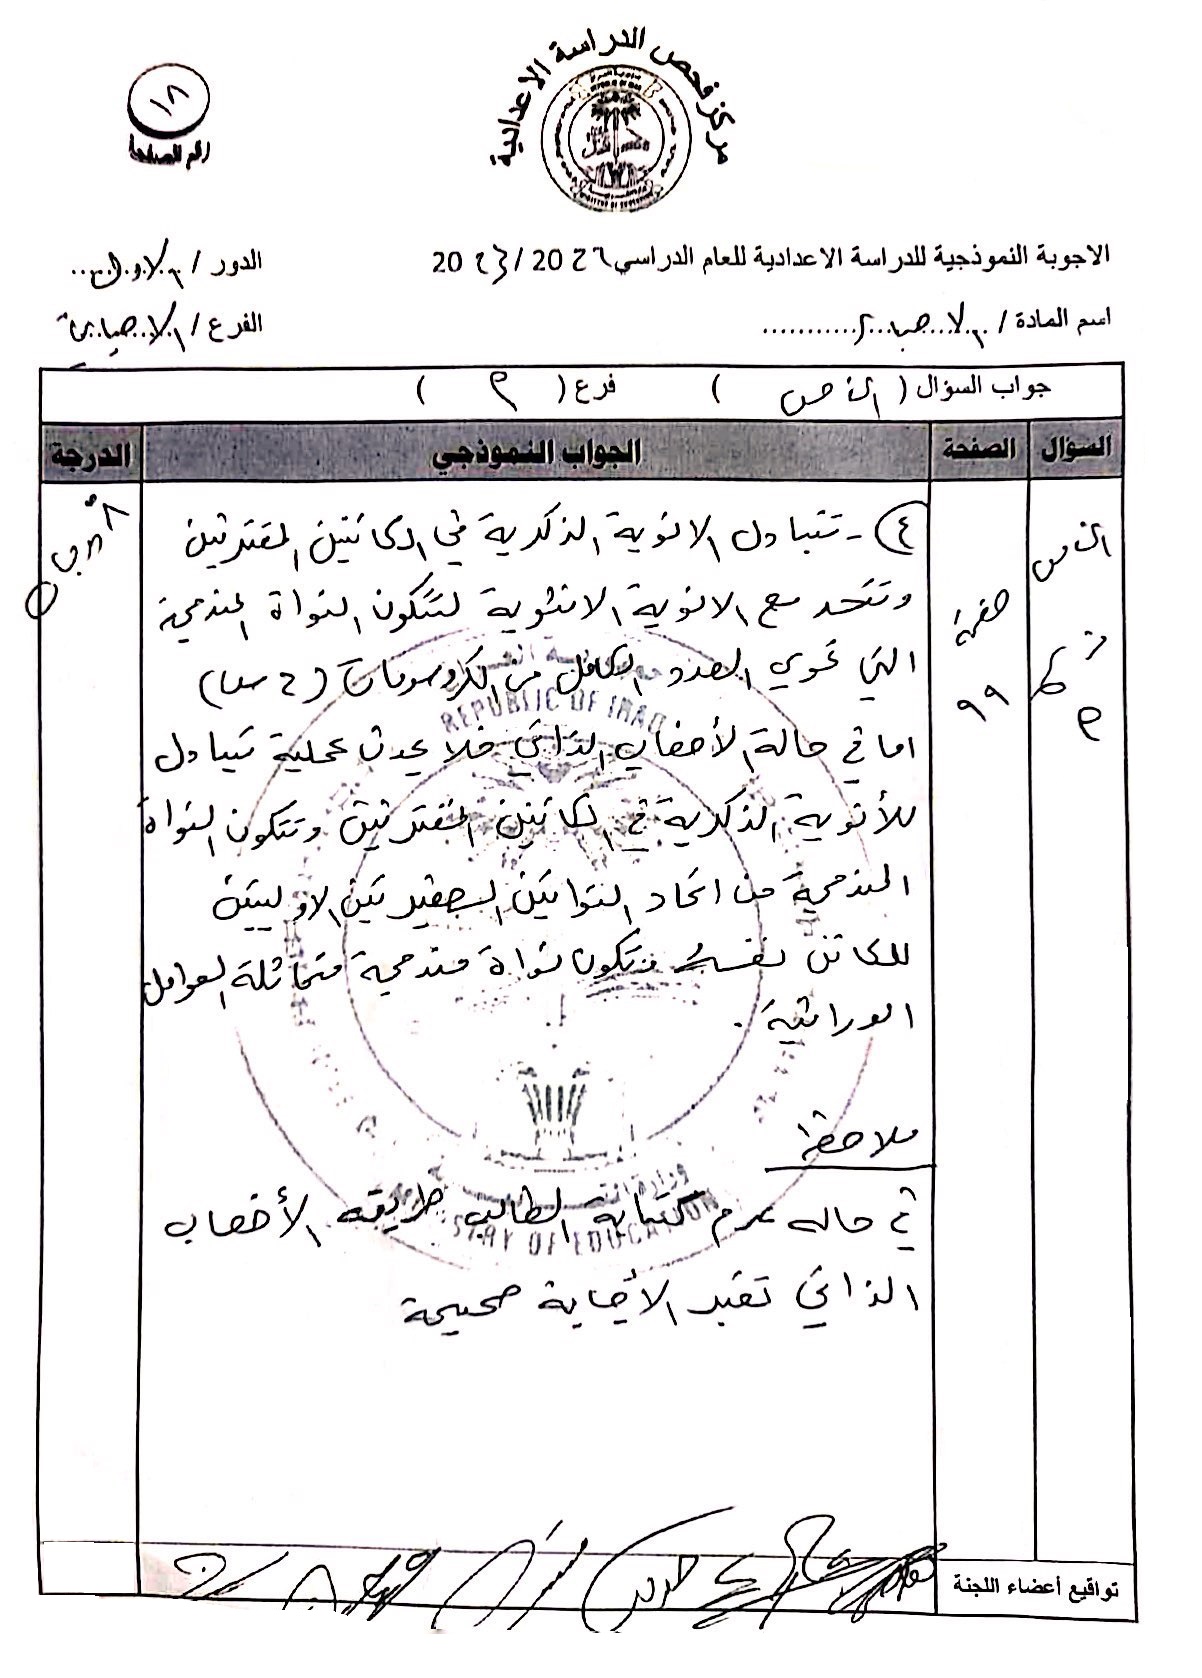 مركز فحص الدراسة الاعدادية
١٨
رقم الصفحة
الاجوبة النموذجية للدراسة الاعدادية للعام الدراسي
الدور / الاول
اسم المادة / الاحياء
الفرع / الاحيائي
جواب السؤال ( الخامس ) فرع ( م )
السؤال الصفحة الجواب النموذجي الدرجة
الخامس
صفحة
٩٩
٤- تتبادل الانوية الذكرية في الكائنين المقترنين
وتتحد مع الانوية الانثوية لتتكون النواة المندمجة
التي تحوي العدد الكامل من الكروسومات (2س)
اما في حالة الأخصاب الذاتي فلا يحدث عملية تبادل
للأنوية الذكرية في الكائنين المقترنين وتتكون النواة
المندمجة من اتحاد النواتين الصغيرتين الاوليتين
للكائن نفسه وتتكون نواة مندمجة متماثلة العوامل
الوراثية.
ملاحظة
في حاله عدم كتابة الطالب طريقه الأخصاب
الذاتي تعتبر الأجابة صحيحة
REPUBLIC OF IRAQ
تواقيع أعضاء اللجنة